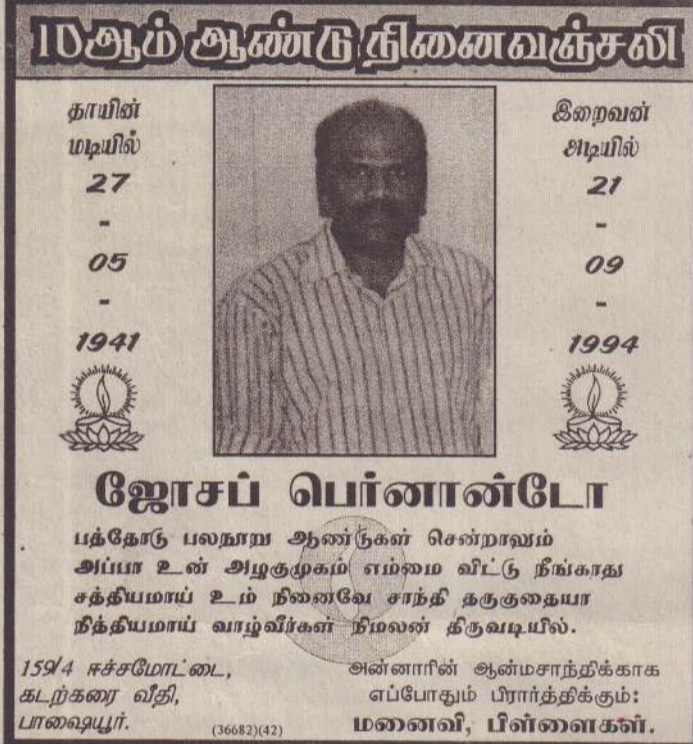 10ஆம் ஆண்டு நினைவஞ்சலி
தாயின்
மடியில்
27
-
05
-
1941
இறைவன்
அடியில்
21
-
09
-
1994
ஜோசப் பெர்னான்டோ
பத்தோடு பலநூறு ஆண்டுகள் சென்றாலும்
அப்பா உன் அழகுமுகம் எம்மை விட்டு நீங்காது
சத்தியமாய் உம் நினைவே சாந்தி தருகுதையா
நித்தியமாய் வாழ்வீர்கள் நிமலன் திருவடியில்.
159/4 ஈச்சமோட்டை,
கடற்கரை வீதி,
பாஷையூர்.
(36682)(42)
அன்னாரின் ஆன்மசாந்திக்காக
எப்போதும் பிரார்த்திக்கும்:
மனைவி, பிள்ளைகள்.